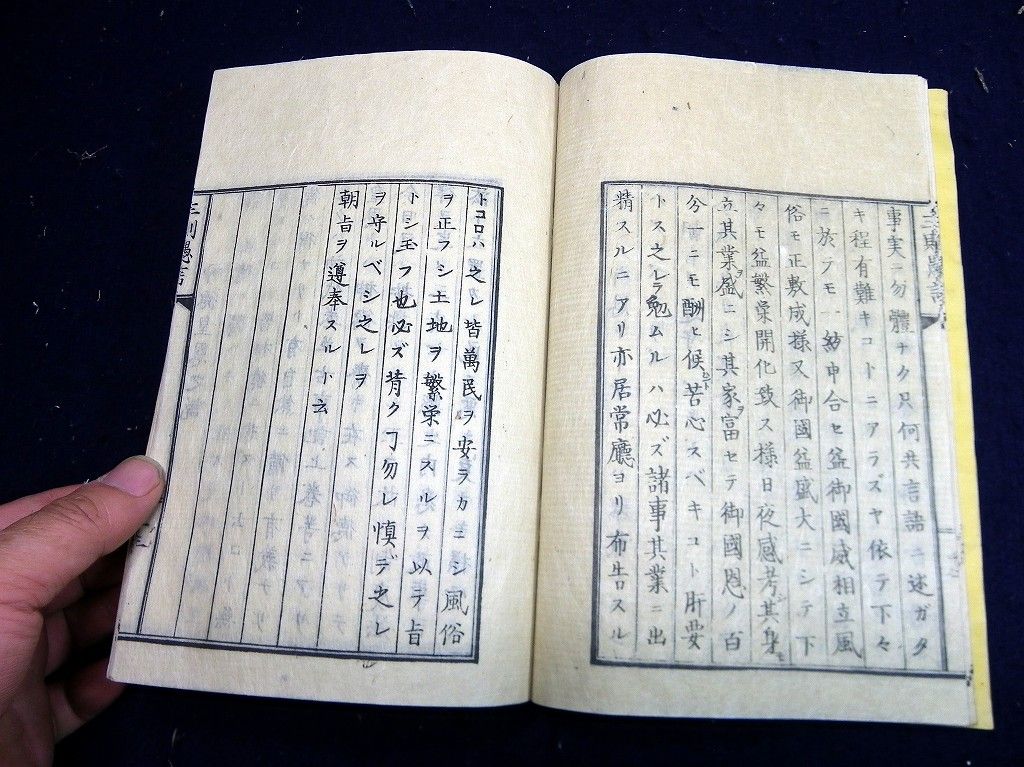 事実ニ勿體ナク只何共言語ニ述ガタ
キ程有難キコトニアラズヤ依テ下々
ニ於テモ一紡申合セ益御國威相立風
俗モ正敷成様又御國益盛大ニシテ下
々モ益繁栄開化致ス様日夜感考其身ヲ
立其業ヲ盛ニシ其家ヲ富セテ御國恩ノ百
分一ニモ酬ヒ候ヤト苦心スベキコト肝要
トス之レヲ勉ムルハ必ズ諸事其業ニ出
精スルニアリ亦居常廳ヨリ布告スル
トコロハ之レ皆萬民ヲ安ラカニシ風俗
ヲ正フシ土地ヲ繁栄ニスルヲ以テ旨
トシ玉フ也必ズ背ク丁勿レ慎デ之レ
ヲ守ルベシ之レヲ
朝旨ヲ遵奉スルト云